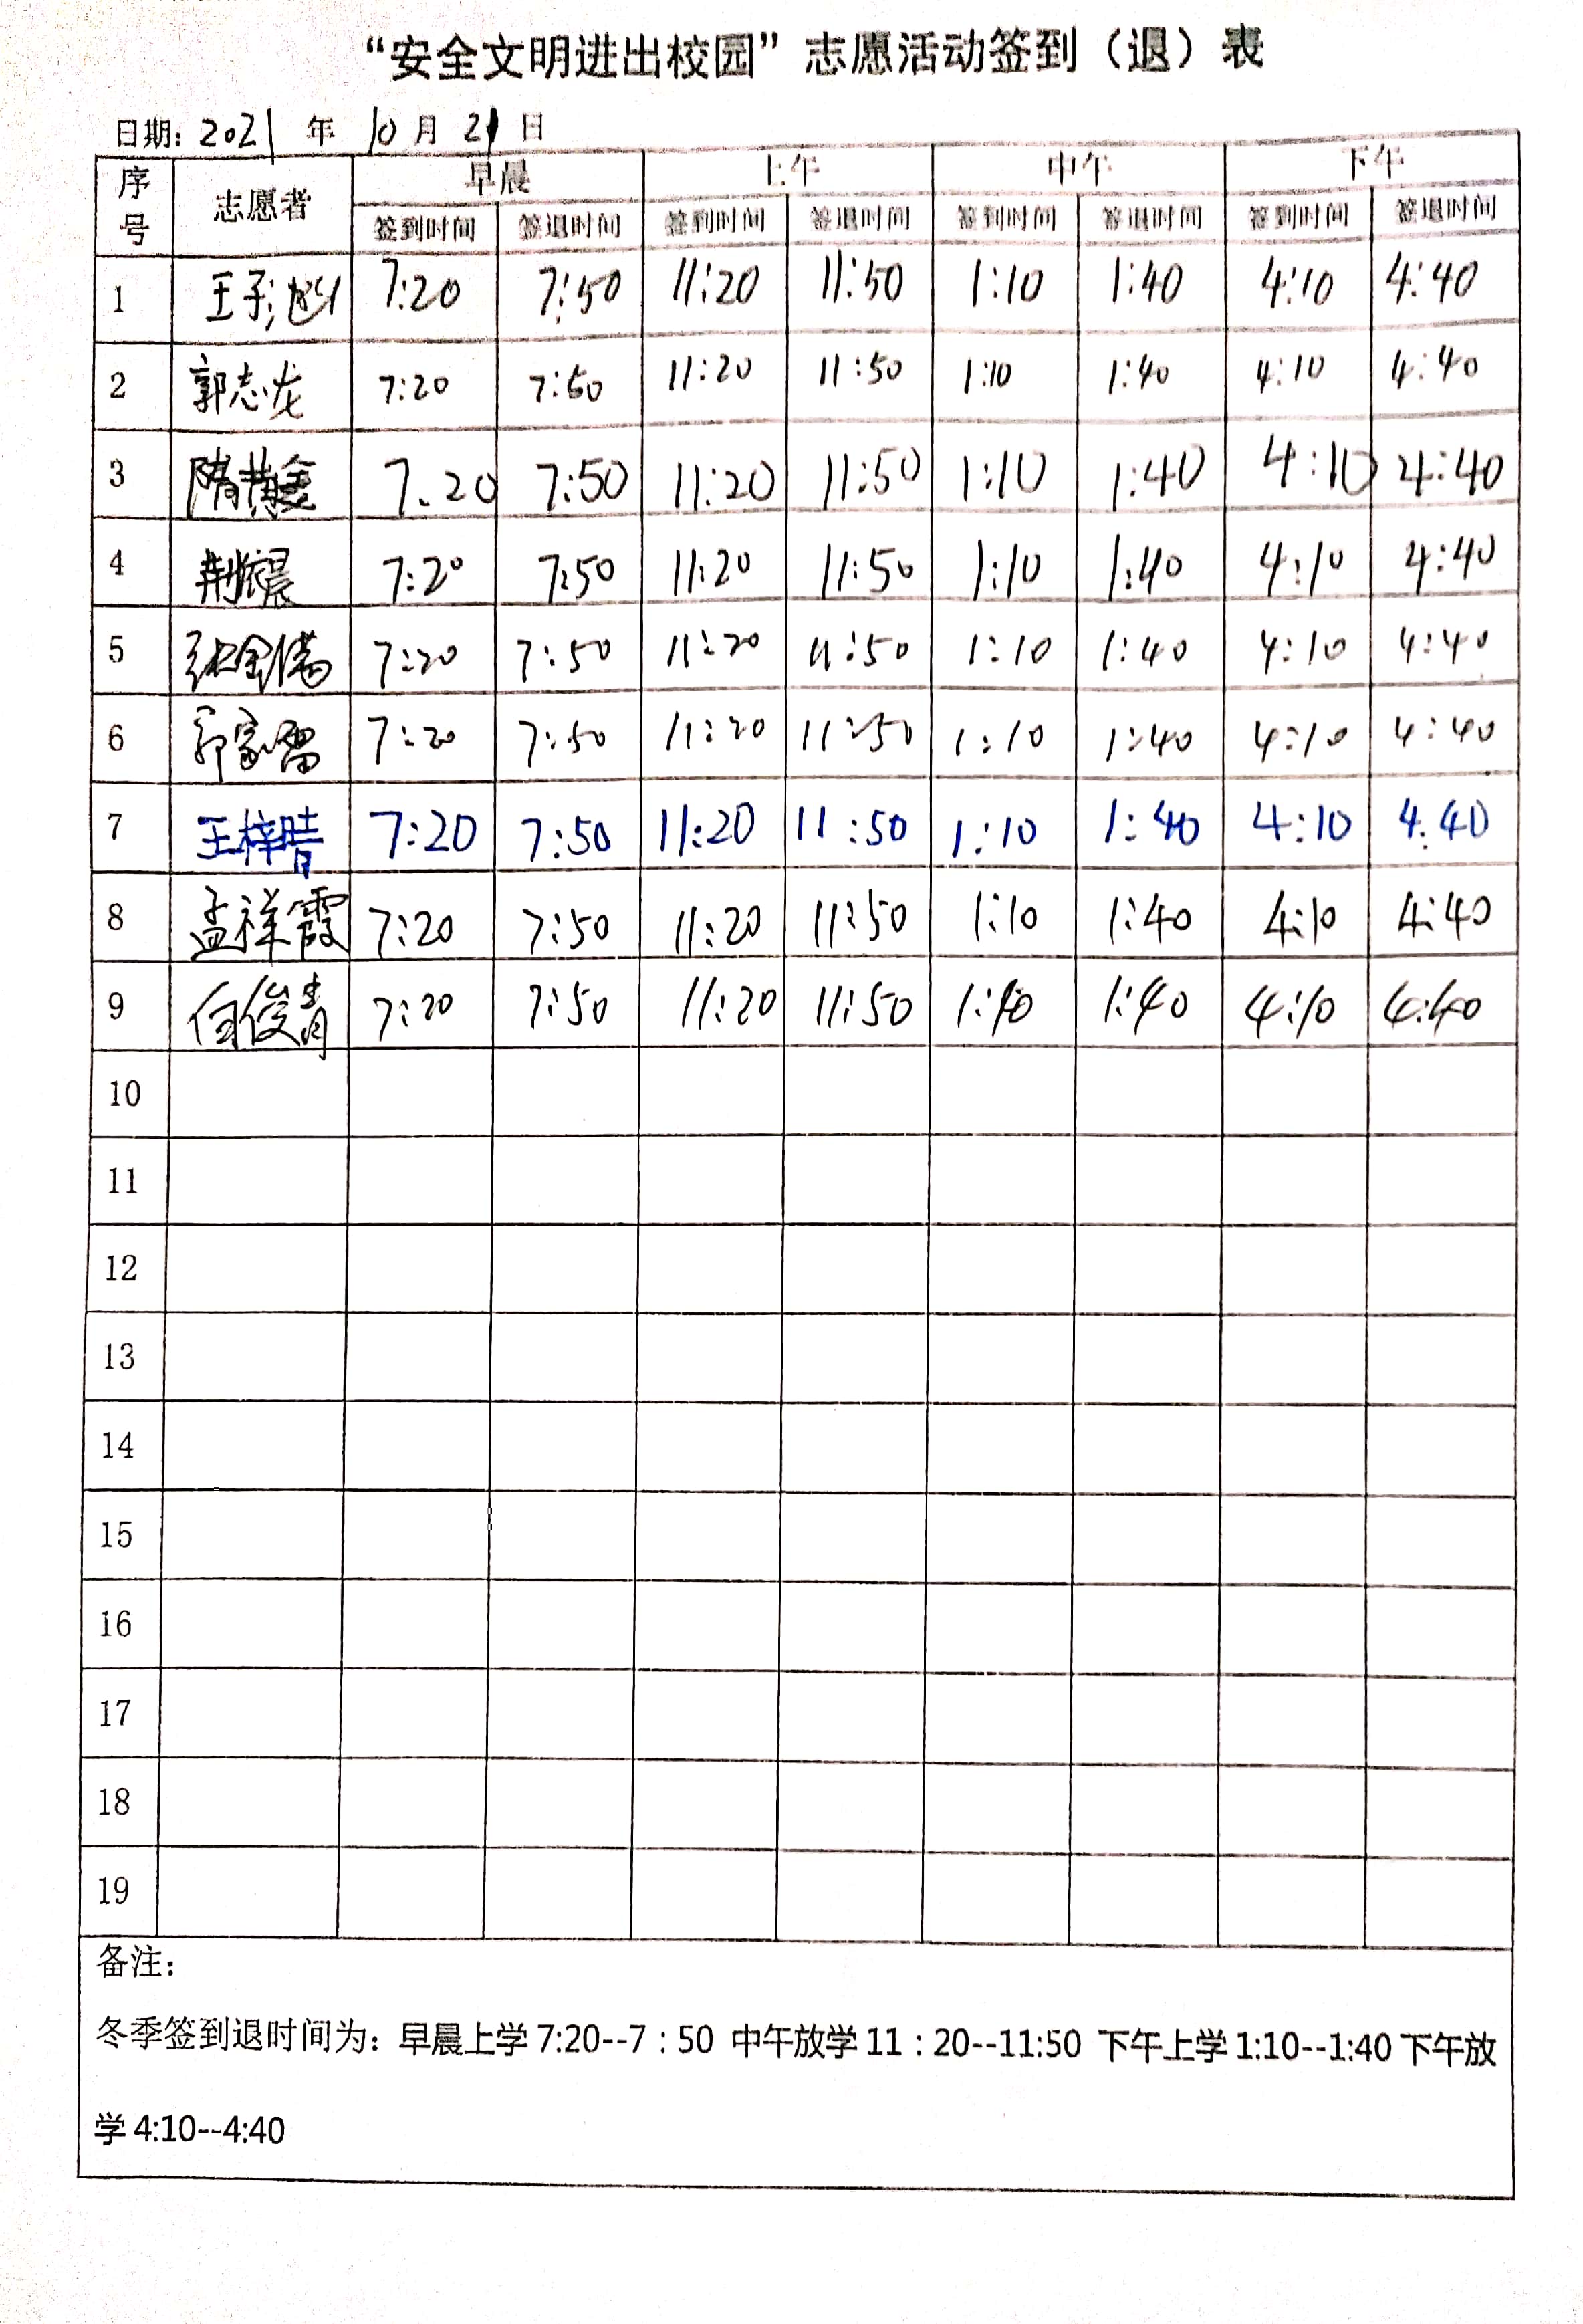 “安全文明进出校园”志愿活动签到（退）表
日期: 2021 年 10 月 21 日
序号 志愿者 早晨 上午 中午 下午
签到时间 签退时间 签到时间 签退时间 签到时间 签退时间 签到时间 签退时间
1 王子 7:20 7:50 11:20 11:50 1:10 1:40 4:10 4:40
2 郭志龙 7:20 7:50 11:20 11:50 1:10 1:40 4:10 4:40
3 隋 7.20 7:50 11:20 11:50 1:10 1:40 4:10 4:40
4 荆 晨 7:20 7:50 11:20 11:50 1:10 1:40 4:10 4:40
5 张 7:20 7:50 11:20 11:50 1:10 1:40 4:10 4:40
6 郭家 7:20 7:50 11:20 11:50 1:10 1:40 4:10 4:40
7 王梓晴 7:20 7:50 11:20 11:50 1:10 1:40 4:10 4.40
8 孟祥霞 7:20 7:50 11:20 11:50 1:10 1:40 4:10 4:40
9 俊青 7:20 7:50 11:20 11:50 1:10 1:40 4:10 4:40
10
11
12
13
14
15
16
17
18
19
备注:
冬季签到退时间为: 早晨上学 7:20--7：50 中午放学 11：20--11:50 下午上学 1:10--1:40 下午放
学 4:10--4:40